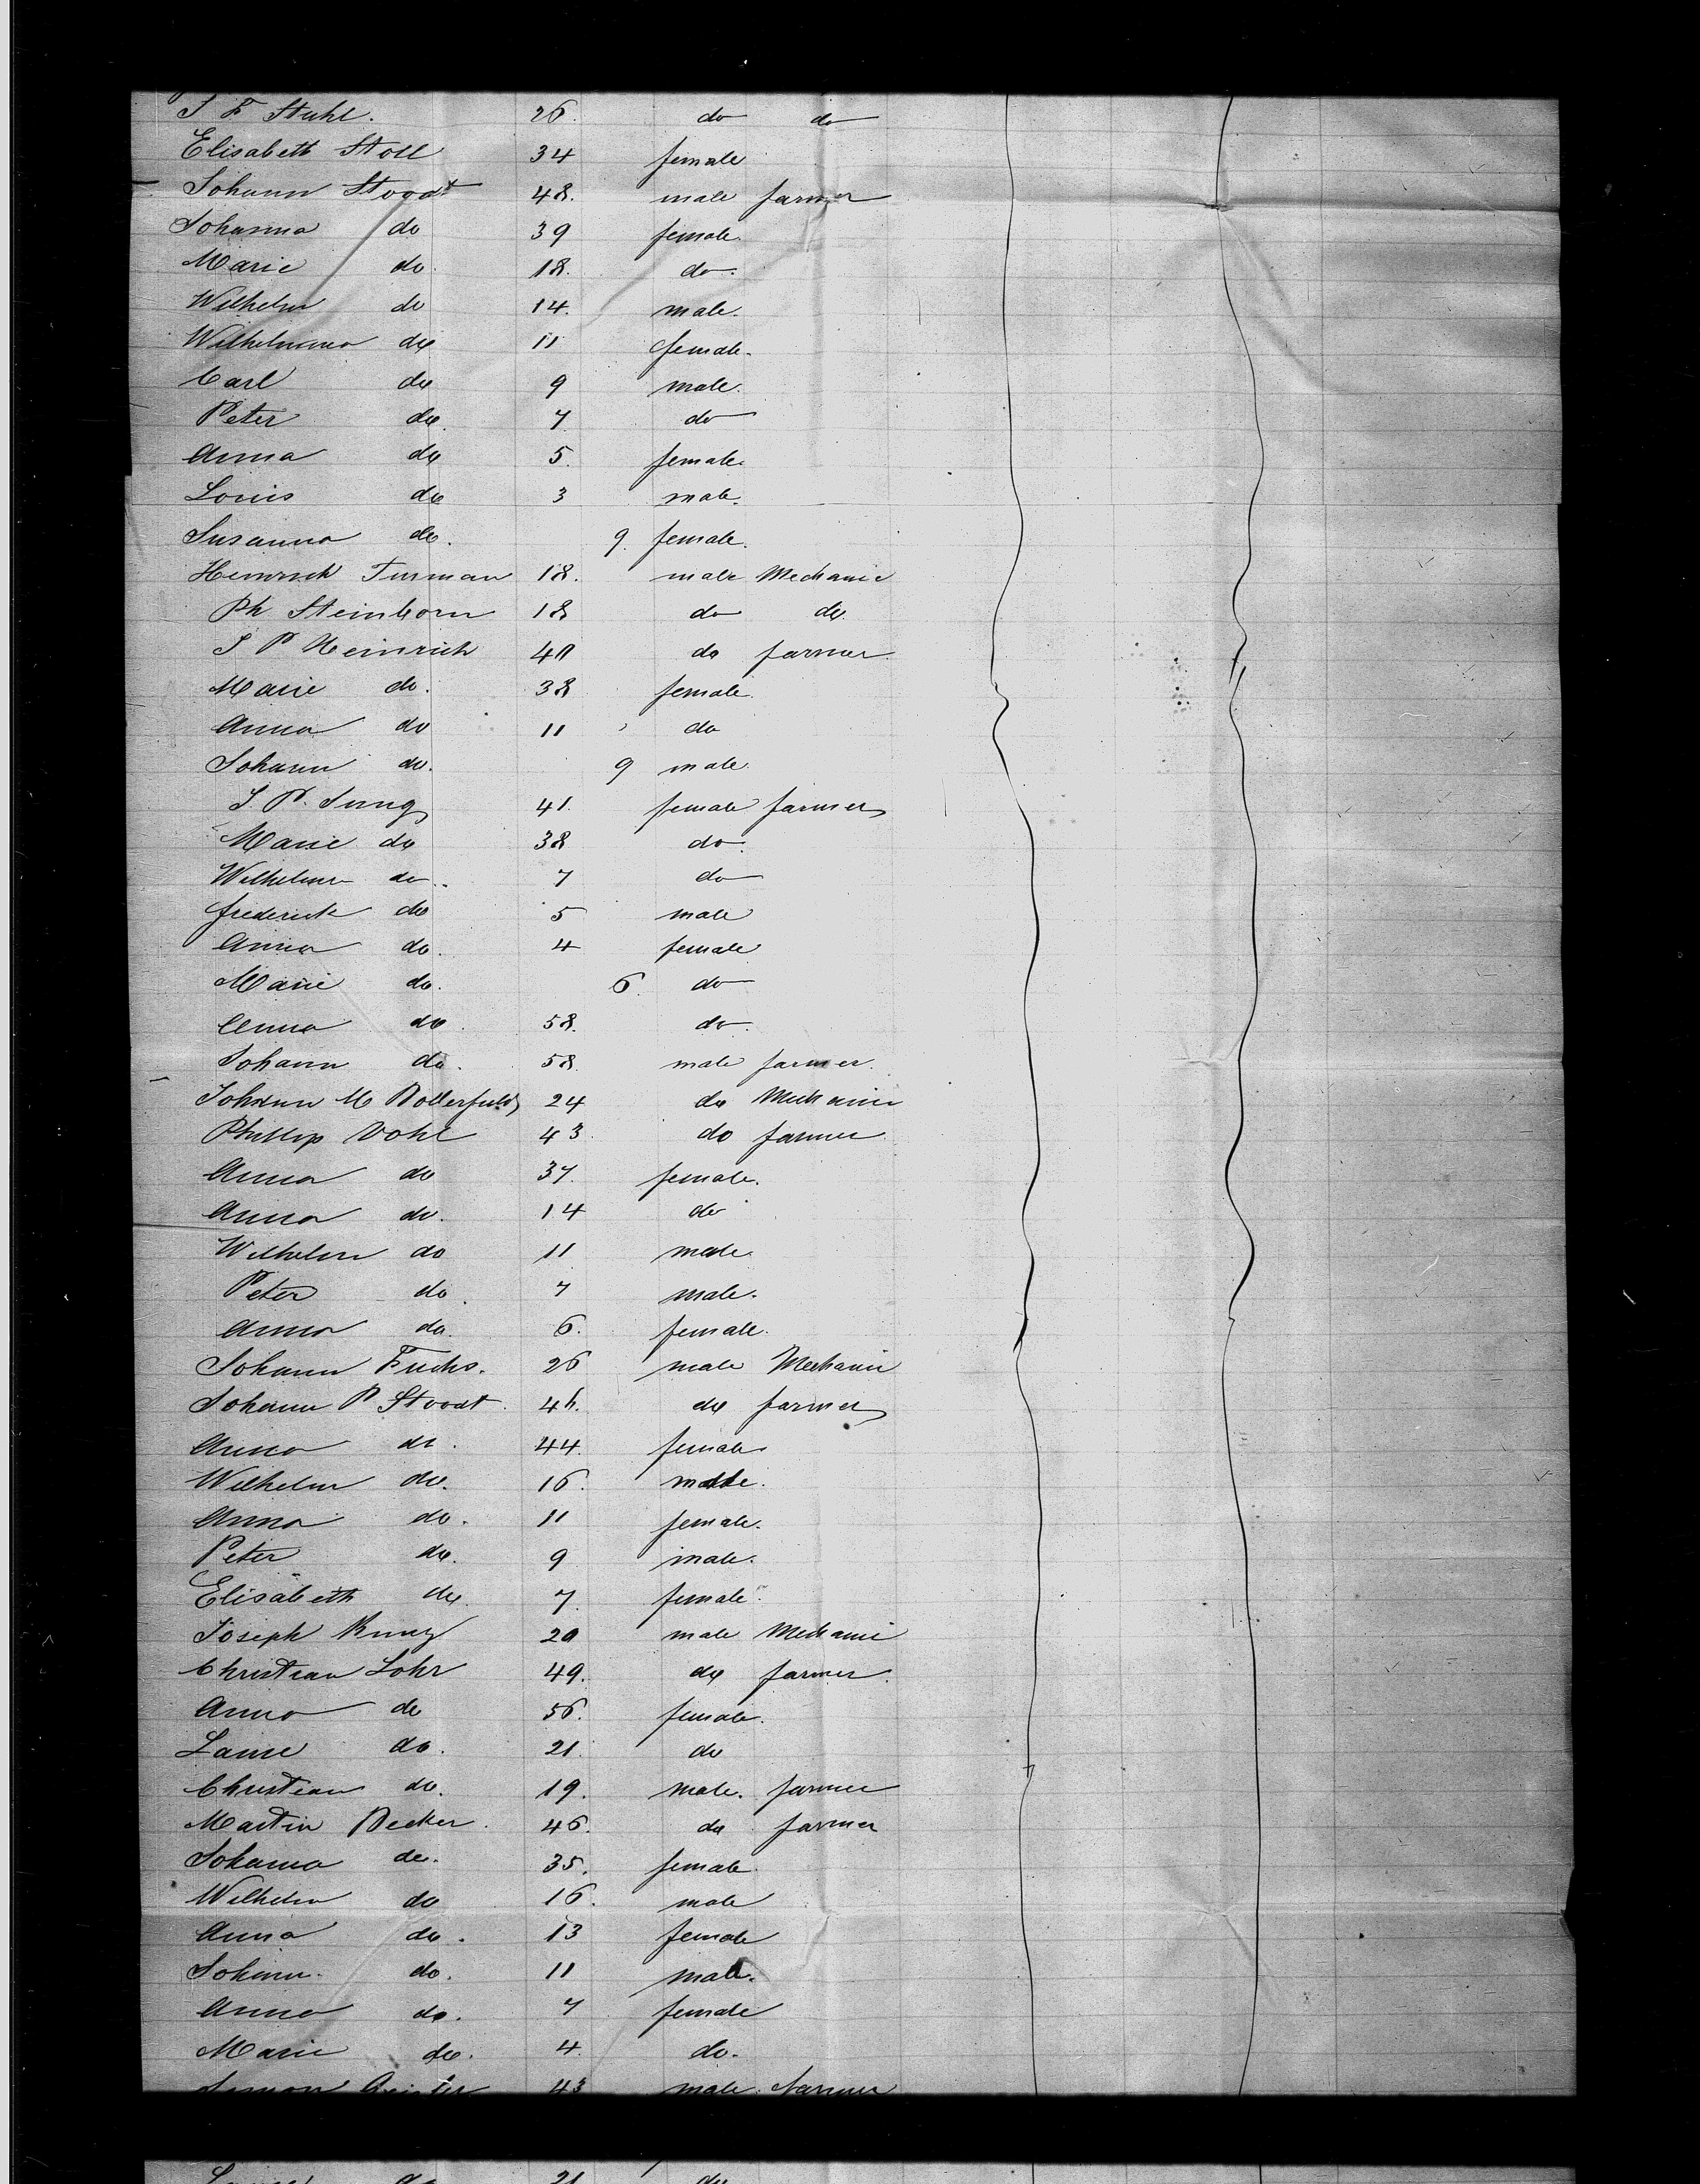 J F Stuhl. 26. do do
Elisabeth Stoll 34 female
Johann Stoodt 48. male farmer
Johanna do 39 female.
Marie do. 18. do.
Wilhelm do 14. male.
Wilhelmina do 11 female.
Carl do 9 male.
Peter do. 7 do
Anna do 5. female.
Louis do 3 male.
Susanna do. 9. female.
Heinrich Turman 18. male Mechanic
Ph. Steinborn 18 do do.
J P Heinrich 40 do farmer
Marie do. 38 female.
Anna do 11 do
Johann do. 9 male.
J. P. Jung 41. female farmer
Marie do 38 do.
Wilhelmn do. 7 do
frederick do 5 male
Anna do. 4 female
Marie do. 6. do
Anna do. 58. do.
Johann do. 58. male farmer.
Johann M 24 do Mechanic
Phillip Vohl 43. do farmer
Anna do 37. female.
Anna do. 14 do
Wilhelm do 11 male.
Peter do. 7 male.
Anna do. 6. female.
Johann Fuchs. 26 male Mechanic
Johann P Stoodt. 46. do farmer
Anna do. 44. female
Wilhelm do. 16. male.
Anna do. 11 female.
Peter do. 9 male.
Elisabeth do. 7. female.
Joseph Kunz 20 male Mechanic
Christian Lohr 49. do farmer.
Anna do 56. female.
do. 21. do
Christian do. 19. male. farmer
Martin Becker. 46. do farmer
Johanna do. 35. female.
Wilhelm do 16. male
Anna do. 13 female
Johann. do. 11 male.
Anna do. 7 female
Marie do. 4. do.
43 male. farmer
21 do